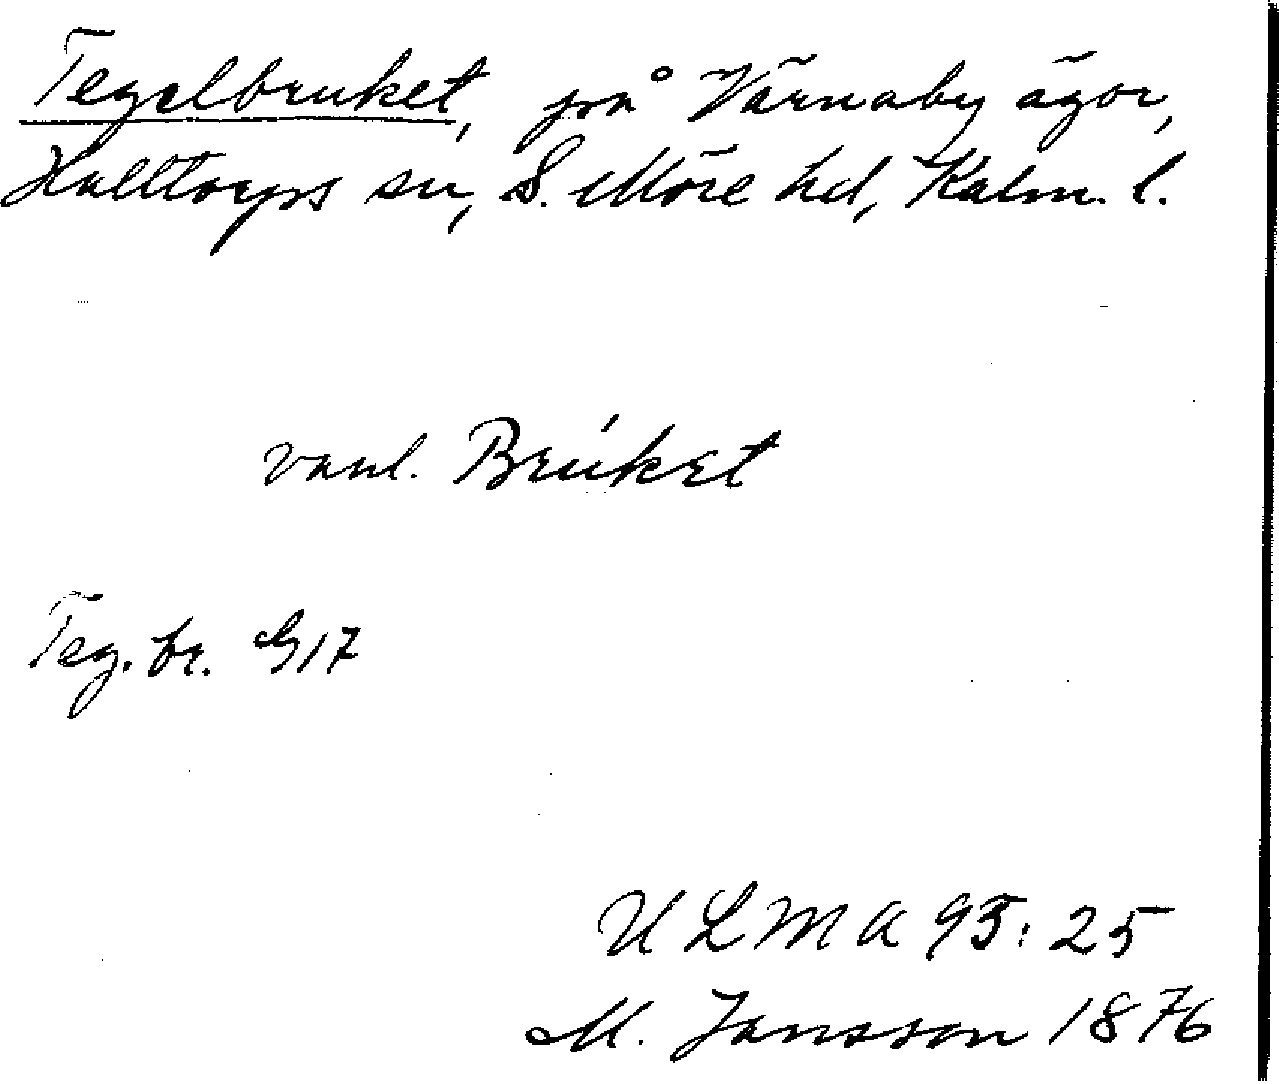 Tegelbruket, på Värnaby ägor,
Halltorps sn, S. Möre hd, Kalm. l.
vanl. Brúket
Teg. br. G17
ULMA 95:25
M. Jansson 1876